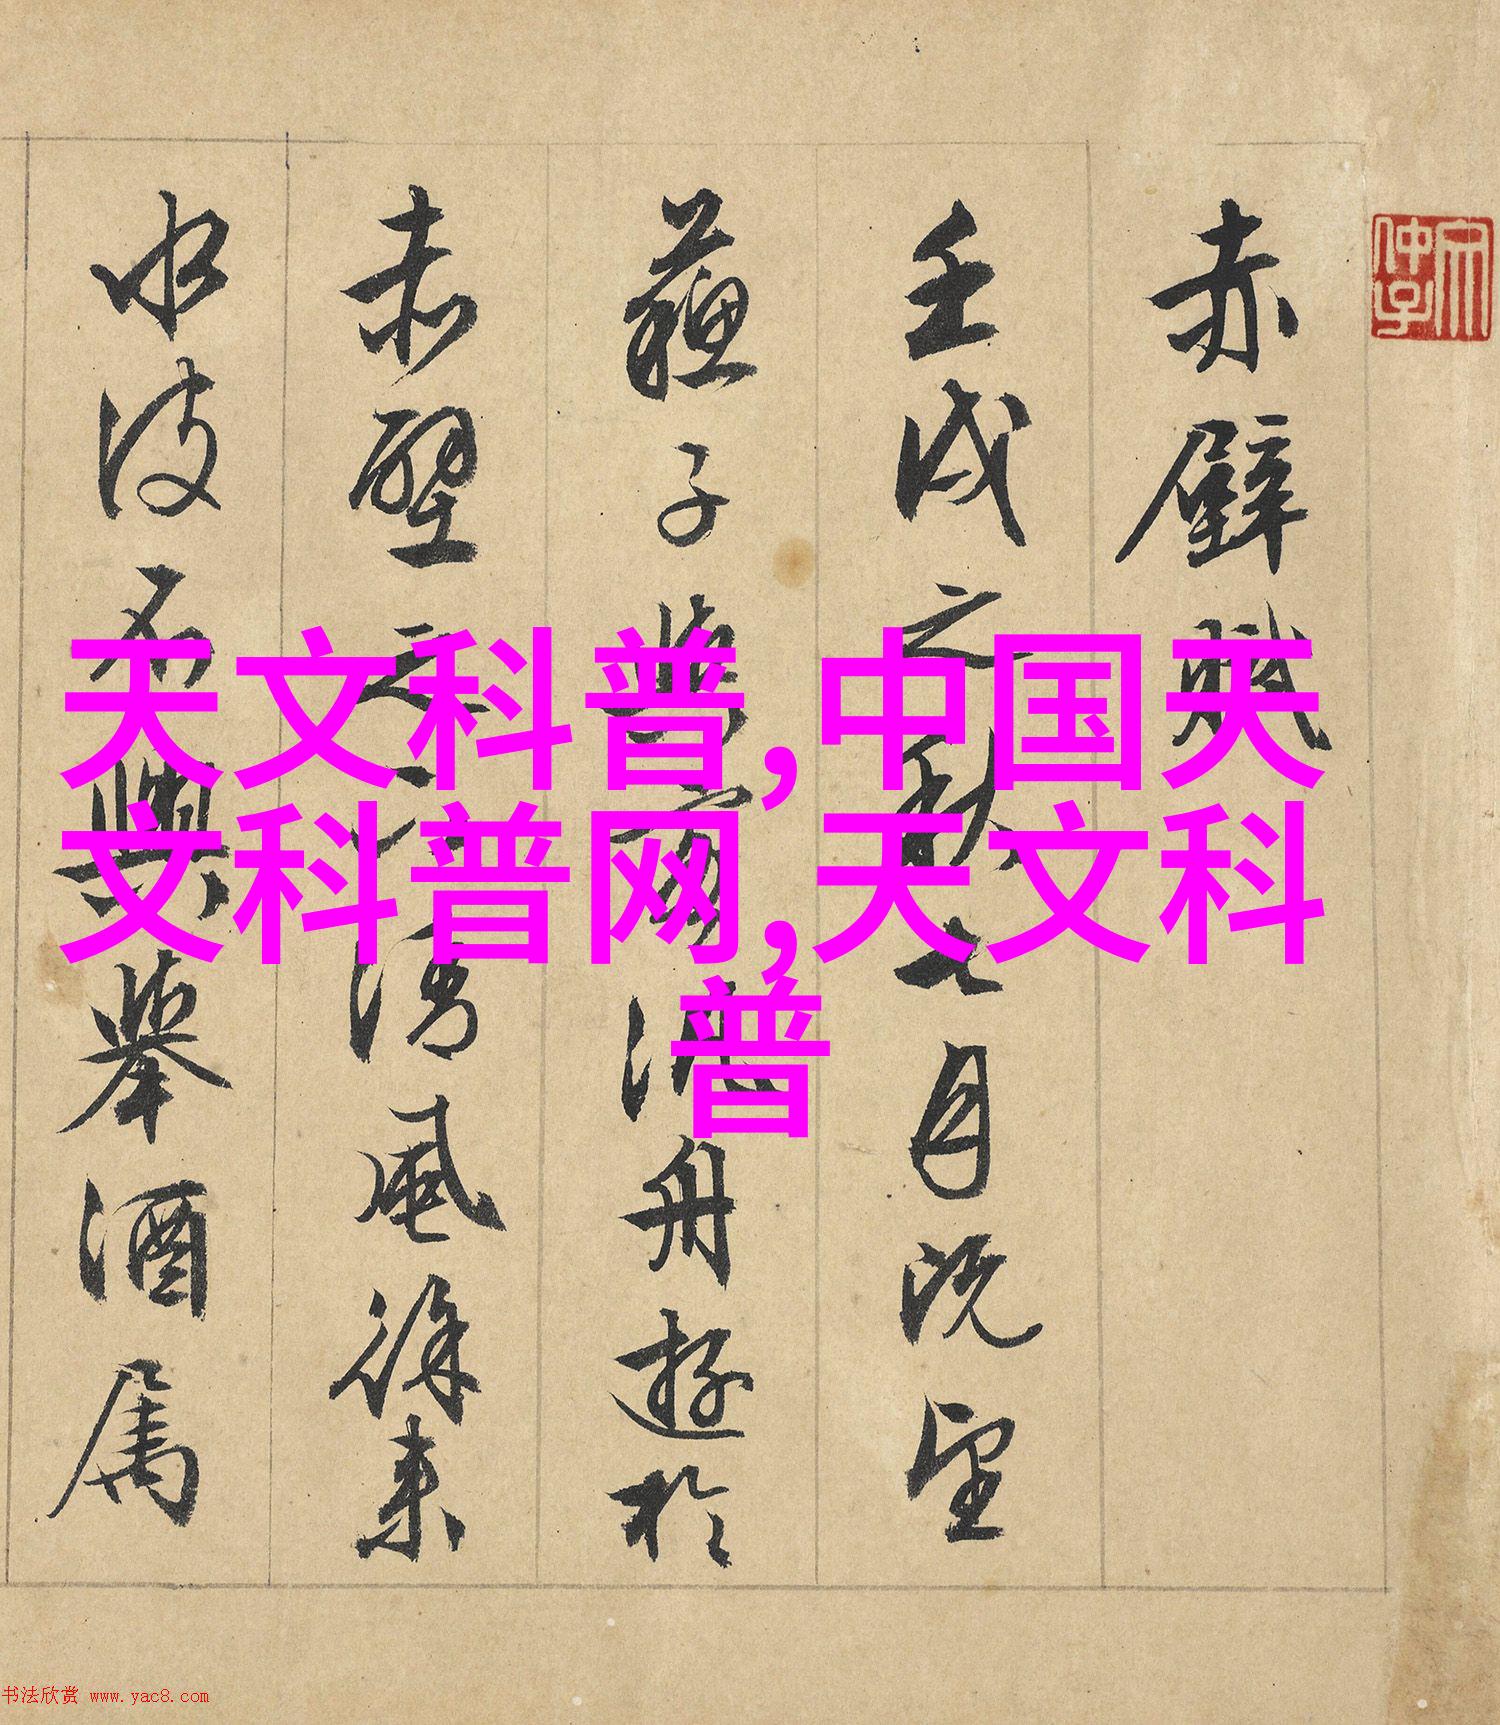 赤壁賦
壬戌之秋七月既望
蘇子與客泛舟遊於
赤壁之下清風徐來
水波不興舉酒屬
天文科普,中国天
文科普网,天文科
普
书法欣赏 www.yac8.com